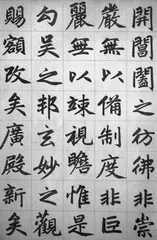 開閶闔之彷彿非崇
嚴無以備制度非巨
麗無以竦視瞻惟是
勾吳之邦玄妙之觀
賜額改矣廣殿新矣